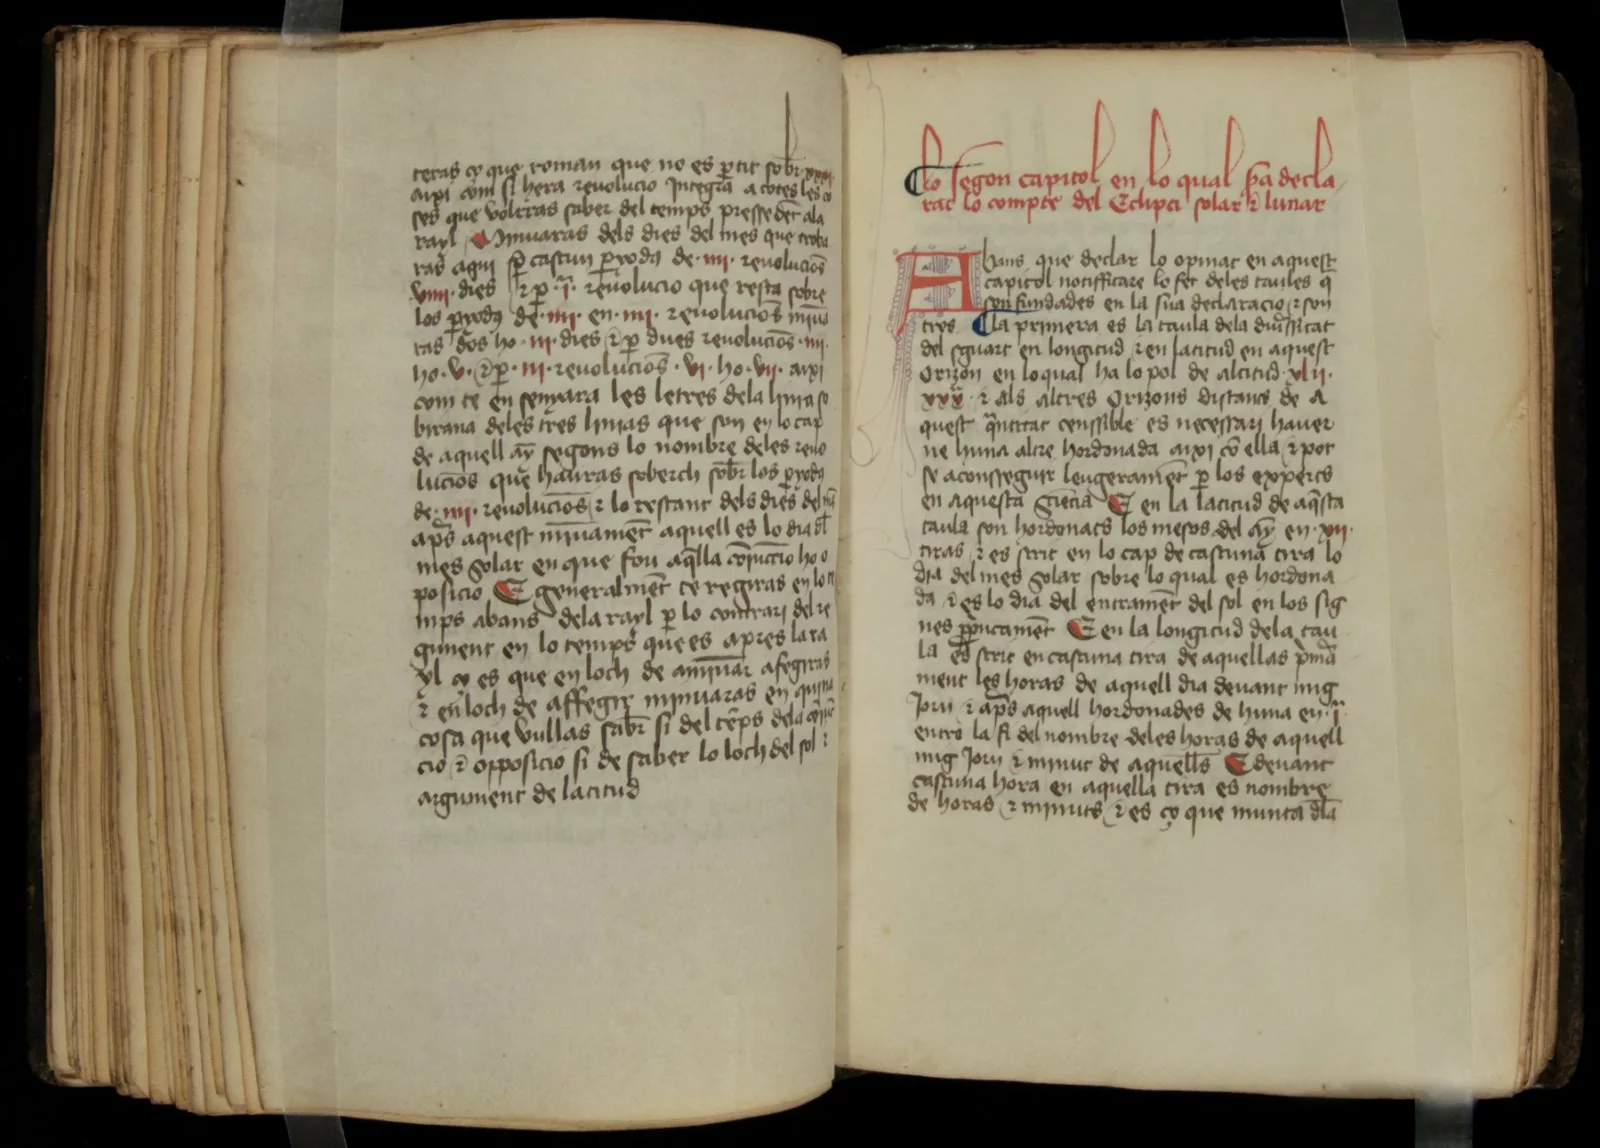 teras ço que roman que no es ꝑtit sobr xxxi
aixi com si hera reuolucio Integra a totes les co
ses que volrras saber del temps pressedēt a la
rayl Minuaras dels dies del mes que troba
ras aqui ꝑ cascun ꝑyodꝯ de · iiii · reuolucioñs
viiii · dies ⁊ ꝑ · i · reuolucio que resta sobre
los ꝑyodꝯ de · iiii · en · iiii · reuolucioñs minua
ras dos ho · iii · dies ⁊ ꝑ dues reuolucioñs · iiii ·
ho · v · ⁊ ꝑ · iii · reuolucioñs · vi · ho · vii · aixi
com te en senyara les letres dela linia so
birana deles tres linias que son en lo cap
de aquell añy segons lo nombre deles reuo
lucions que hauras soberch sobr̄ los ꝑyodꝯ
de · iiii · reuolucioñs ⁊ lo restant dels dies del
ap̄s aquest minuamēt aquell es lo dia dl̄
mes solar en que fou aq̄lla cōiūccio ho o
posicio E generalmēt te regiras en lo te
mps abans dela rayl ꝑ lo contrari del re
giment en lo temps que es apres la ra
yl ço es que en loch de aminuar afegiras
⁊ en loch de affegir minuaras en quina
cosa que vullas sabr̄ si del tēps dela cōiūc
cio ⁊ opposicio si de saber lo loch del sol ⁊
argument de latitud
lo segon capitol en lo qual sꝑa decla
rat lo compte del Eclipci solar ⁊ lunar
Abans que declar lo opinat en aquest
capitol notifficare lo fet deles taules q̄
son fundades en la sua declaracio ⁊ son
tres La primera es la taula dela diuꝰsitat
del sguart en longitud ⁊ en latitud en aquest
Orizon en lo qual ha lo pol de altitud · xlii ·
xxx · ⁊ als altres Orizons distans de A
quest q̄ntitat censsible es necessari hauer
ne huna altre hordonada aixi cō ella ⁊ pot
se aconsseguir leugeramēt ꝑ los expperts
en aquesta Sciēcia E en la latitud de aq̄sta
taula son hordonats los mesos del añy en · xii ·
tiras ⁊ es scrit en lo cap de cascuna tira lo
dia del mes Solar sobre lo qual es hordona
da ⁊ es lo dia del entramēt del sol en los sig
nes ꝓpucamēt E en la longitud dela tau
la es scrit en cascuna tira de aquellas p̄ma
ment les horas de aquell dia deuant mig
Jorn ⁊ ap̄s aquell hordonades de huna en · i ·
entro la fi del nombre deles horas de aquell
mig Jorn ⁊ minut de aquells E deuant
cascuna hora en aquella tira es nombre
de horas ⁊ minuts ⁊ es ço que munta dl̄a